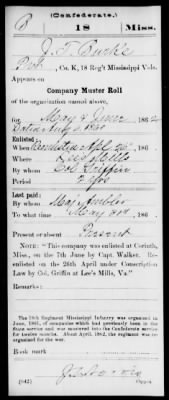 (Confederate.)
B 18 Miss.
J. T. Burke
Pvt, Co. K, 18 Reg't Mississippi Vols.
Appears on
Company Muster Roll
of the organization named above,
for May & June 1862
Enlisted:
When
Where Lees Mills
By whom Col Griffin
Period 2 yrs
Last paid:
By whom Maj Ambler
To what time 186 .
Present or absent Present
NOTE.—"This company was enlisted at Corinth,
Miss., on the 7th June by Capt. Walker. Re-
enlisted on the 26th April under Conscription
Law by Col. Griffin at Lee's Mills, Va."
Remarks:
The 18th Regiment Mississippi Infantry was organized in
June, 1861, of companies which had previously been in the
State service and was mustered into the Confederate service
for twelve months. About April, 1862, the regiment was
re-enlisted for two years.
Book mark:
(642)
Copyist.